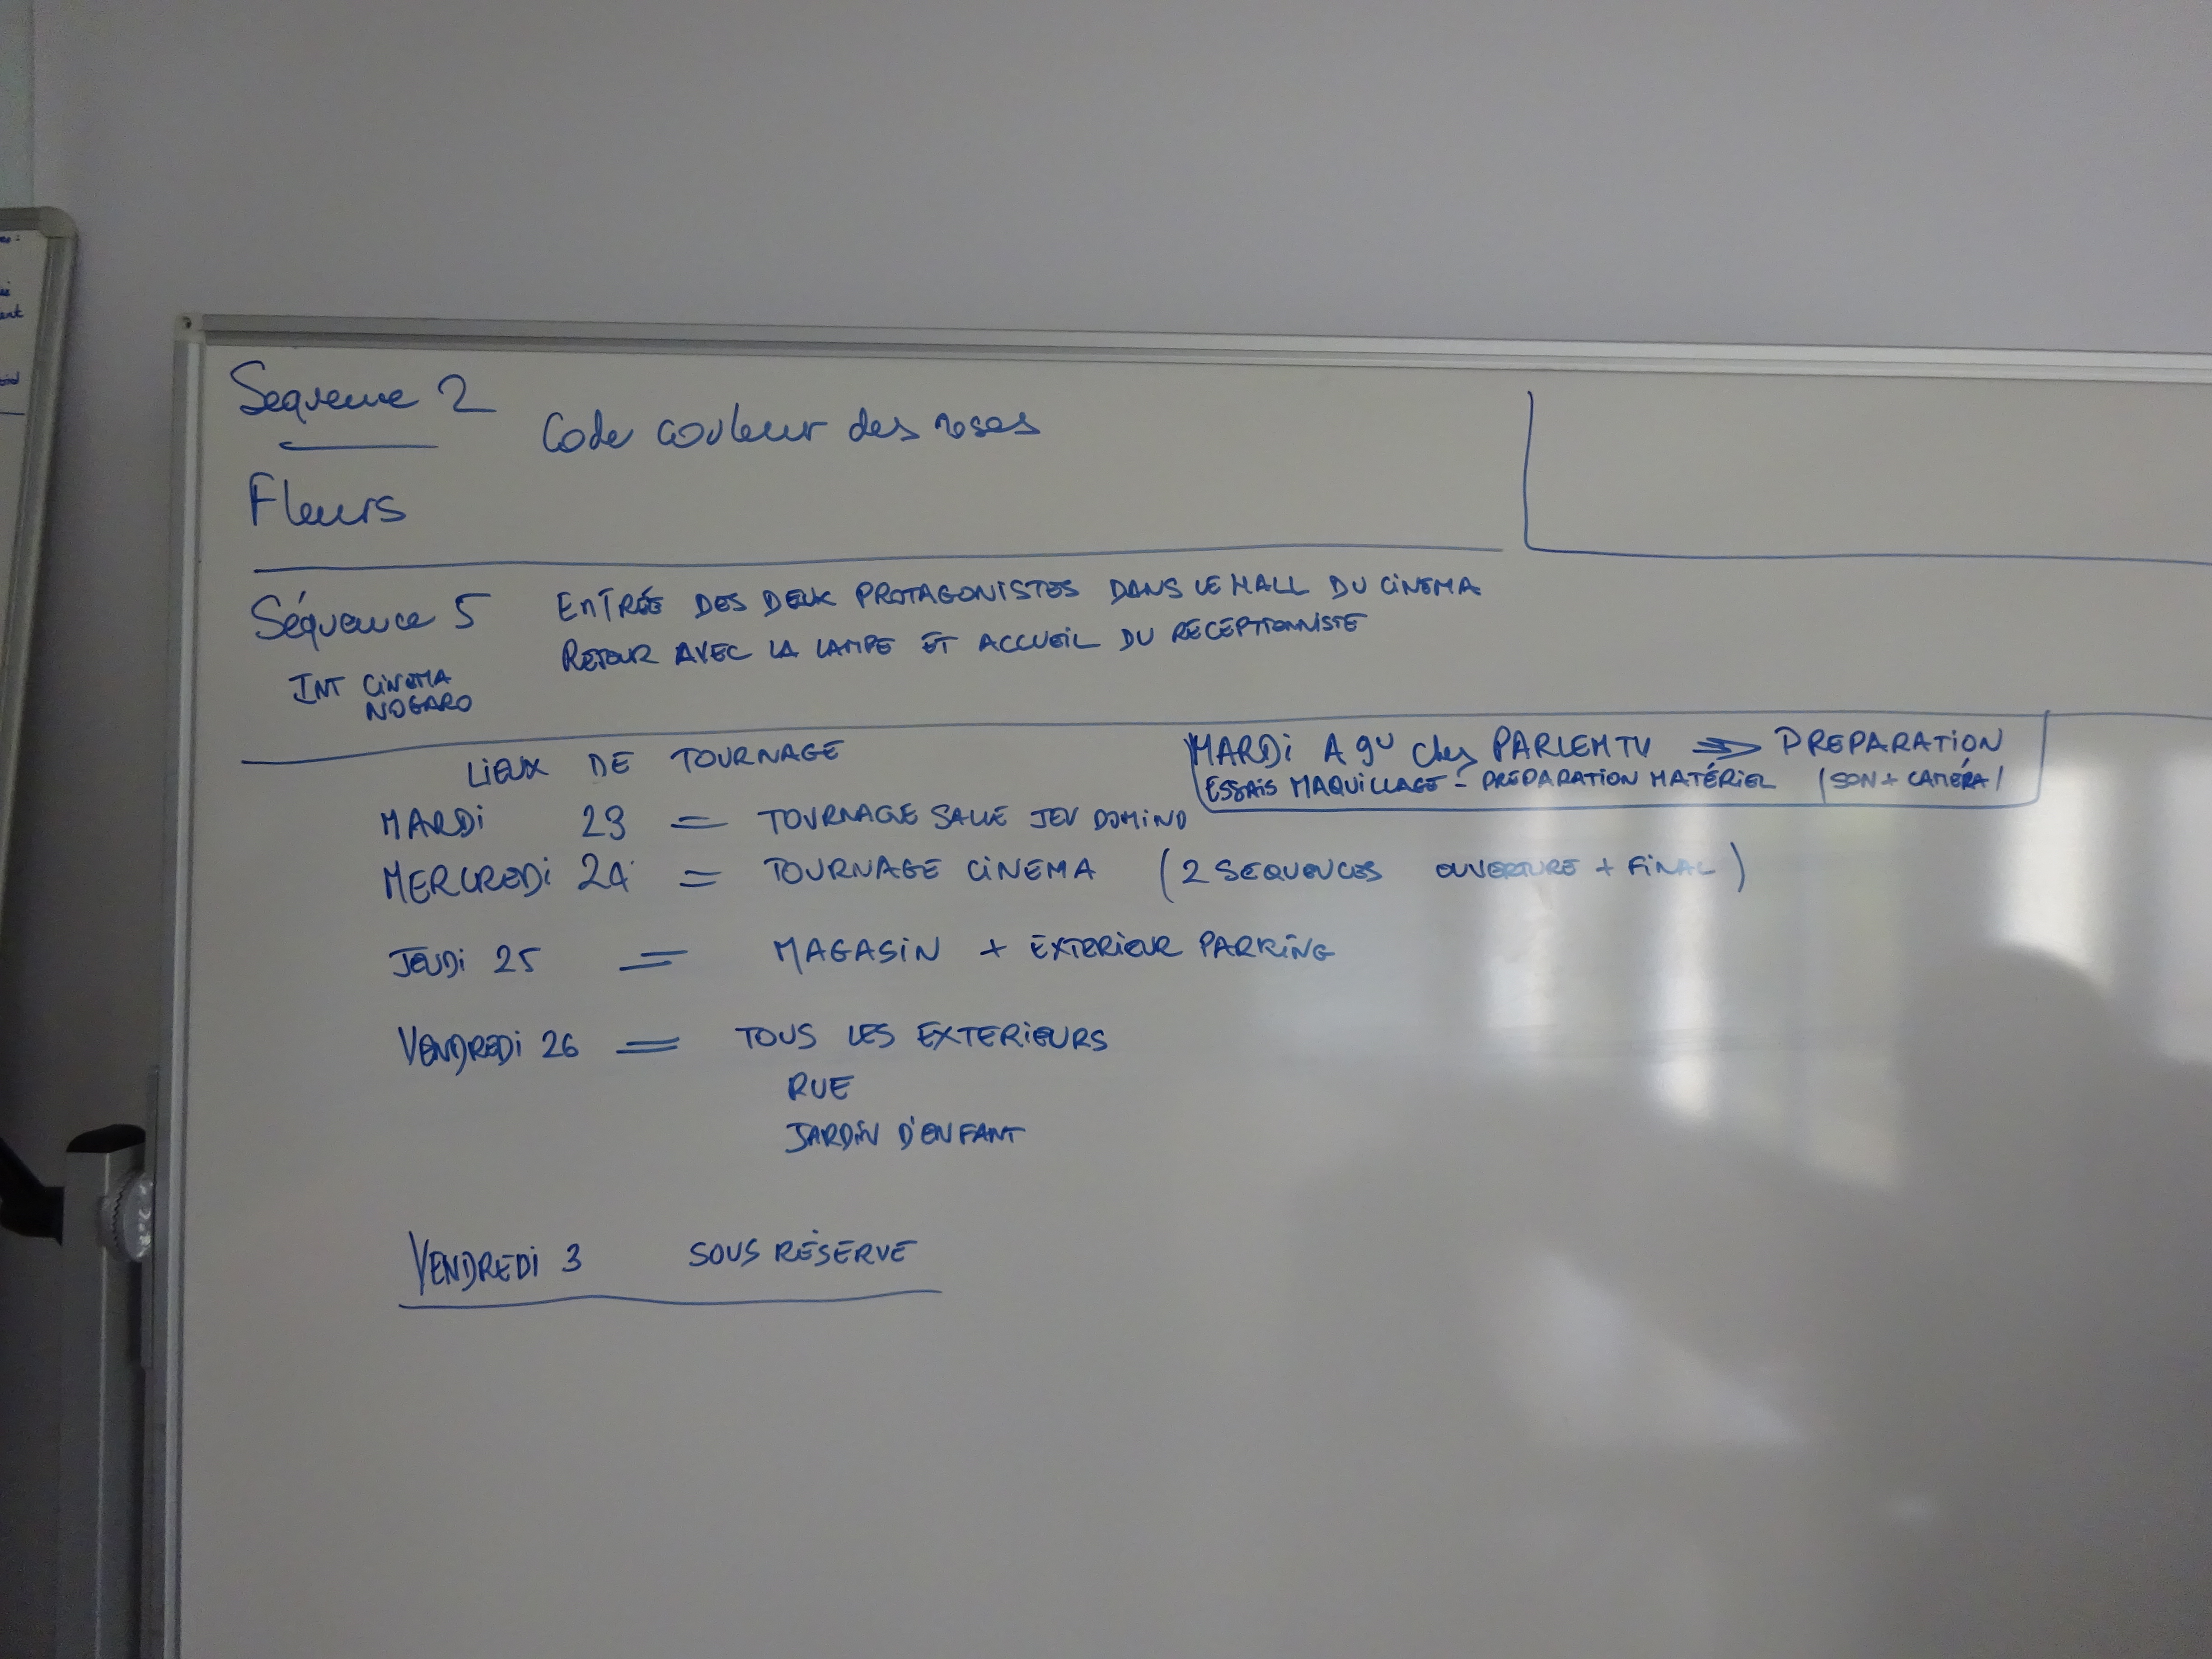 Séquence 2
Code couleur des roses
Fleurs
Séquence 5
ENTRÉE DES DEUX PROTAGONISTES DANS LE HALL DU CINEMA
RETOUR AVEC LA LAMPE ET ACCUEIL DU RECEPTIONNISTE
INT CINEMA
NOGARO
LIEUX DE TOURNAGE
MARDI A 9H chez PARLEMTV => PREPARATION
ESSAIS MAQUILLAGE - PREPARATION MATÉRIEL (SON + CAMÉRA)
MARDI 23 = TOURNAGE SALLE JEU DOMINO
MERCREDI 24 = TOURNAGE CINEMA (2 SEQUENCES OUVERTURE + FINAL)
JEUDI 25 = MAGASIN + EXTERIEUR PARKING
VENDREDI 26 = TOUS LES EXTERIEURS
RUE
JARDIN D'ENFANT
VENDREDI 3 SOUS RÉSERVE